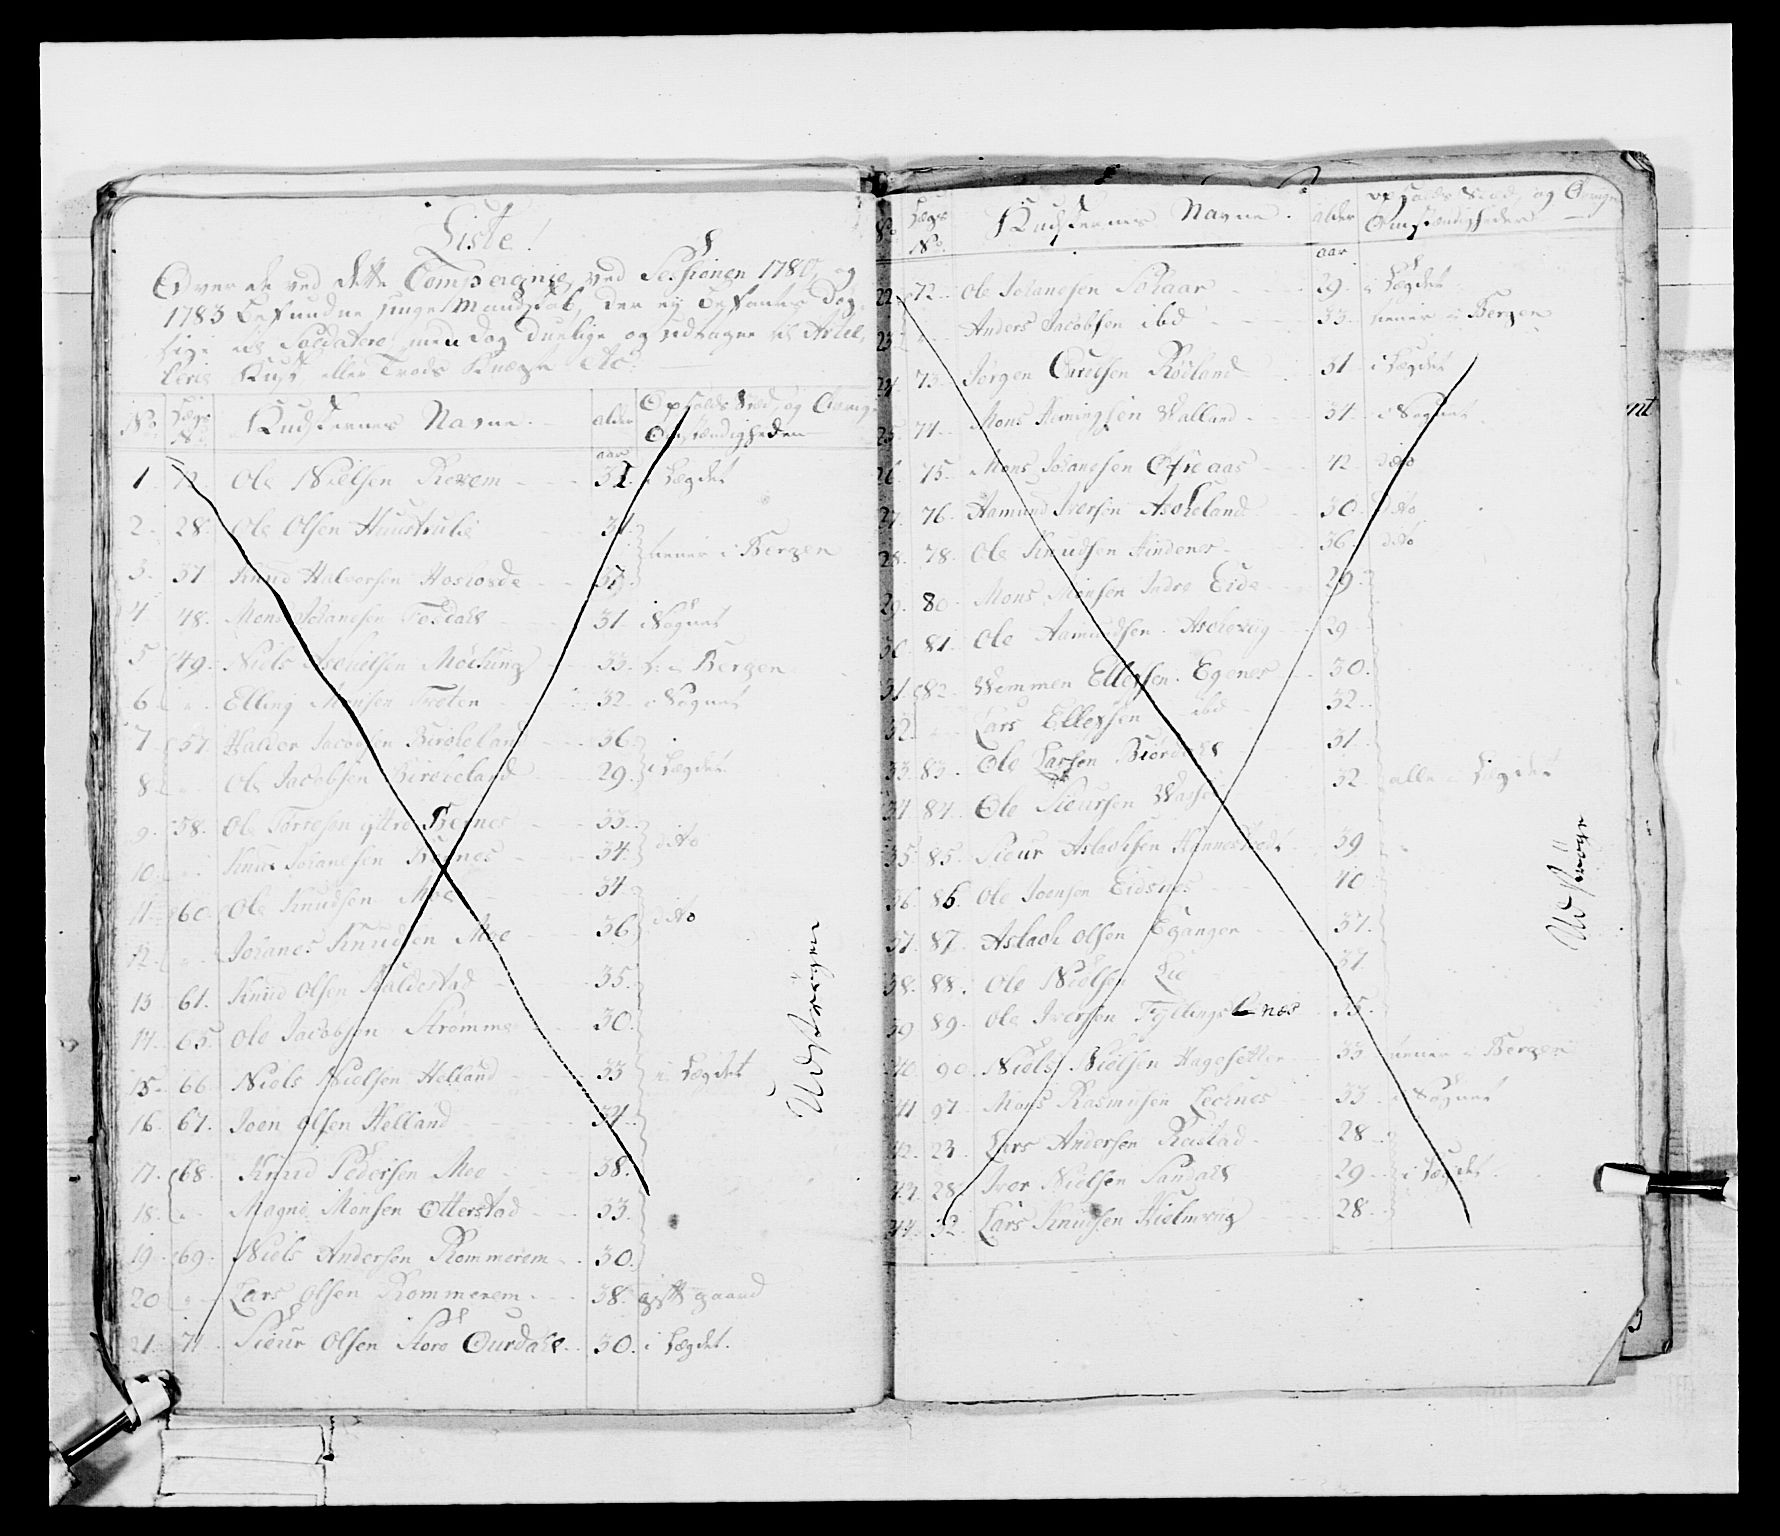 Liste!
Over de ved dette Compagnie, ved Sessionen 1780, og
1783 befundne unge Mandskab, der ej befantes dog-
lige til Soldatere, men dog duelige og udtagne til Artel-
lerie Kusk eller Trods Knægte etc:
No Lægs No Kudskernes Navne. alder aar Opholds Stæd, og Øvrige Omstændigheder
1. 12. Ole Nielsen Revem 31 i Lægdet
2. 28. Ole Olsen 31
tiener i Bergen
3. 37 Knud Halvorsen 33.
4 48. Mons Johannesen 31 i Sognet
5 49. Niels Askielsen Møching 33. t. i Bergen
6. " Elling Monsen Træten 32 i Sognet
7 57 Halder Jacobsen Birkeland 36.
8. " Ole Jacobsen Birkeland 29. i Lægdet
9. 58. Ole Torresen yttre Bernes 33.
10. " Knud Johannesen Bernes 34. dito
11. 60. Ole Knudsen Moe 34
12. " Johannes Knudsen Moe 36 dito
13 61. Knud Olsen Kaldestad 35.
14. 65. Ole Jacobsen Strømme 30.
15. 66. Niels Nielsen Helland 33 i Lægdet
16. 67. Joen Olsen Helland 34.
17. 68. Knud Pedersen Moe 38.
18. " Magne Monsen Otterstad 33.
19. 69. Niels Andersen Rommerem 30.
20 " Lars Olsen Rommerem 38. gift gaard
21. 71 Siur Olsen Store Ourdahl 30. i Lægdet.
Udströgen
No Lægs No. Kudskernes Navne. alder aar Opholds Stæd, og Øvrige Omstændigheder
22. 72. Ole Johannesen 29. i Lægdet
23. " Anders Jacobsen ibd 33. tiener i Bergen
24. 73. Jørgen Rødland 31 i Lægdet
25. 74. Mons Hemingsen Walland 34. i Sognet
26. 75. Mons Johannesen Ofreaas 42. dito
27. 76. Aamund Iversen Askeland 30. dito
28. 78. Ole Knudsen Hindenes 36. dito
29. 80. Mons Monsen Indre Eide 29.
30. 81. Ole Aamundsen Askevig 29
31. 82. Wemmen Ellefsen Egenes 30.
32. Lars Ellefsen ibd 32.
33. 83. Ole Larsen Biørdahl 31
34. 84. Ole Siursen 32. alle i Lægdet
35. 85. Siur Aslachsen 39
36. 86. Ole Joensen Eidsnes 40
37. 87. Aslach Olsen Eganger 37.
38. 88. Ole Nielsen Lie 37
39 89. Ole Iversen Fyllingsnes 35.
40. 90. Niels Nielsen Hagesetter 33 tiener i Bergen
41 97. Mons Rasmusen Lechnes 33 i Sognet
42. 23. Lars Andersen Reistad 28
43. 28 Iver Nielsen Sandahl 29. i Lægdet
44. 32. Lars Knudsen Hielmvig 28
Udströge